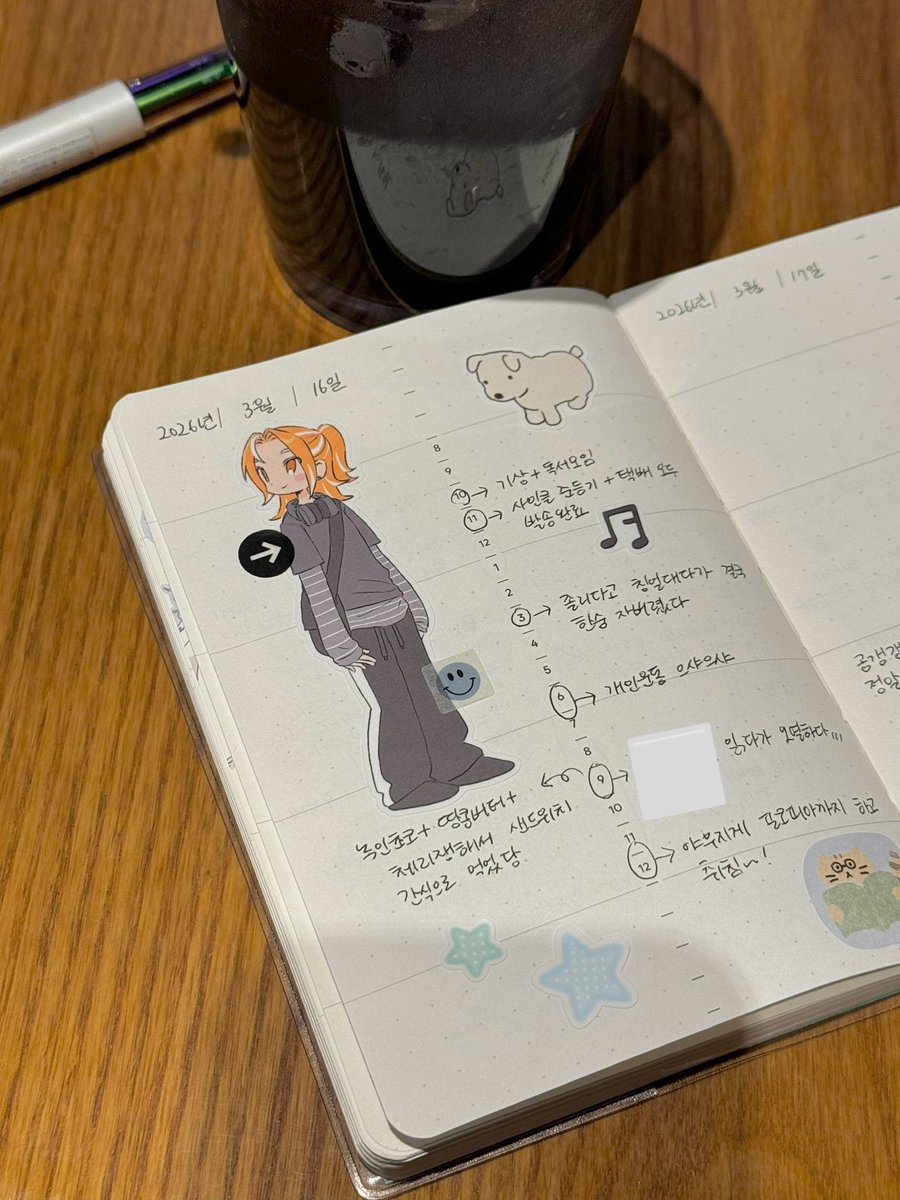 2026년 | 3월 | 16일
8
9
10 → 기상 + 독서모임
11 → 사인클 준등기 + 택배 모두
발송완료
12
1
2
3 → 졸리다고 칭얼대다가 결국
한숨 자버렸다
4
5
6 → 개인운동 으쌰으쌰
7
8
9 →
읽다가 오열하다,,,
녹인초코 + 땅콩버터 +
체리잼해서 샌드위치
간식으로 먹었당
10
11
12 → 야무지게 글로피아까지 하고
취침~!
2026년 | 3월 | 17일
정말